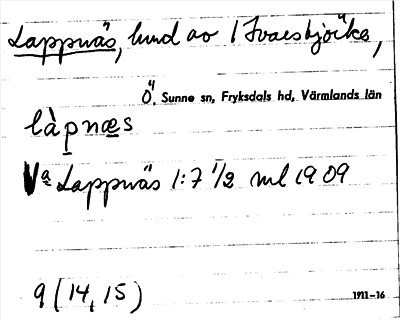 Lappnäs, hmd av 1 Ivarsbjörke,
Ö. Sunne sn, Fryksdals hd, Värmlands län
làpnæs
Va Lappnäs 1:7 1/2 ml 1909
9 (14, 15)
1911–16